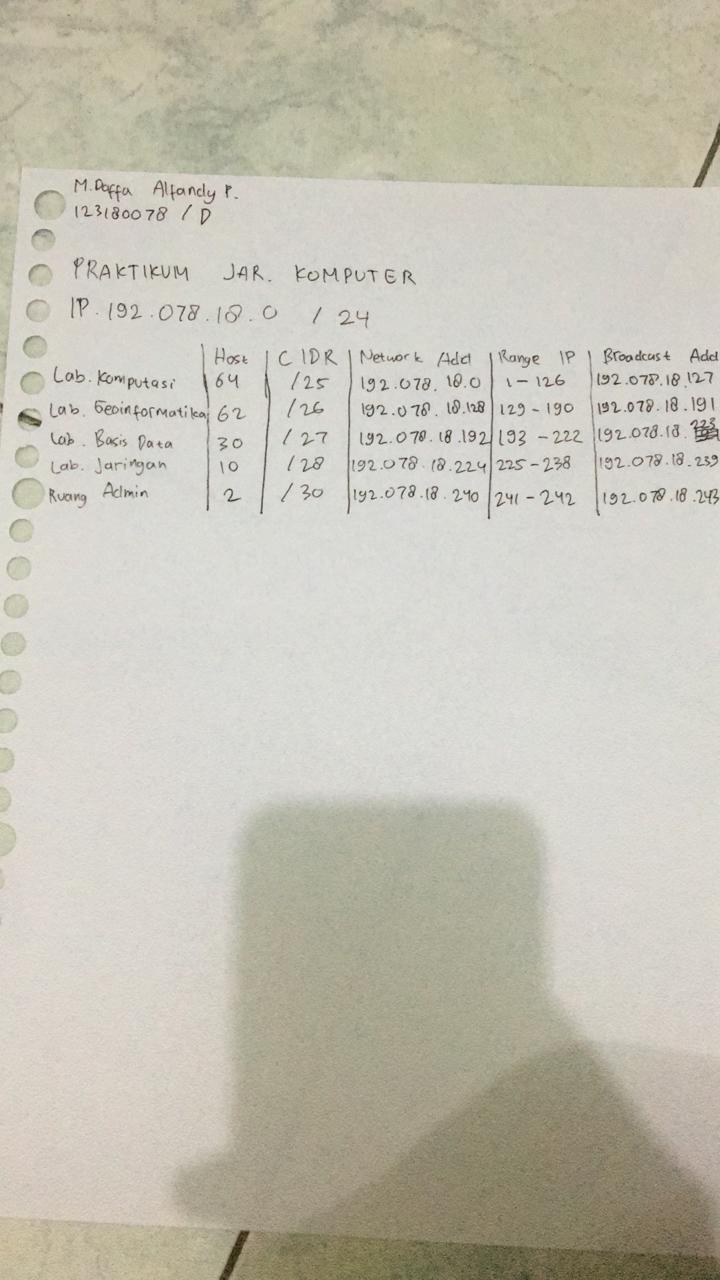 M. Daffa Alfandy P.
123180078 / D
PRAKTIKUM JAR. KOMPUTER
IP. 192.078.18.0 / 24
Host CIDR Network Add Range IP Broadcast Add
Lab. Komputasi 64 /25 192.078.18.0 1-126 192.078.18.127
Lab. Geoinformatika 62 /26 192.078.18.128 129-190 192.078.18.191
Lab. Basis Data 30 /27 192.078.18.192 193-222 192.078.18.223
Lab. Jaringan 10 /28 192.078.18.224 225-238 192.078.18.239
Ruang Admin 2 /30 192.078.18.240 241-242 192.078.18.243